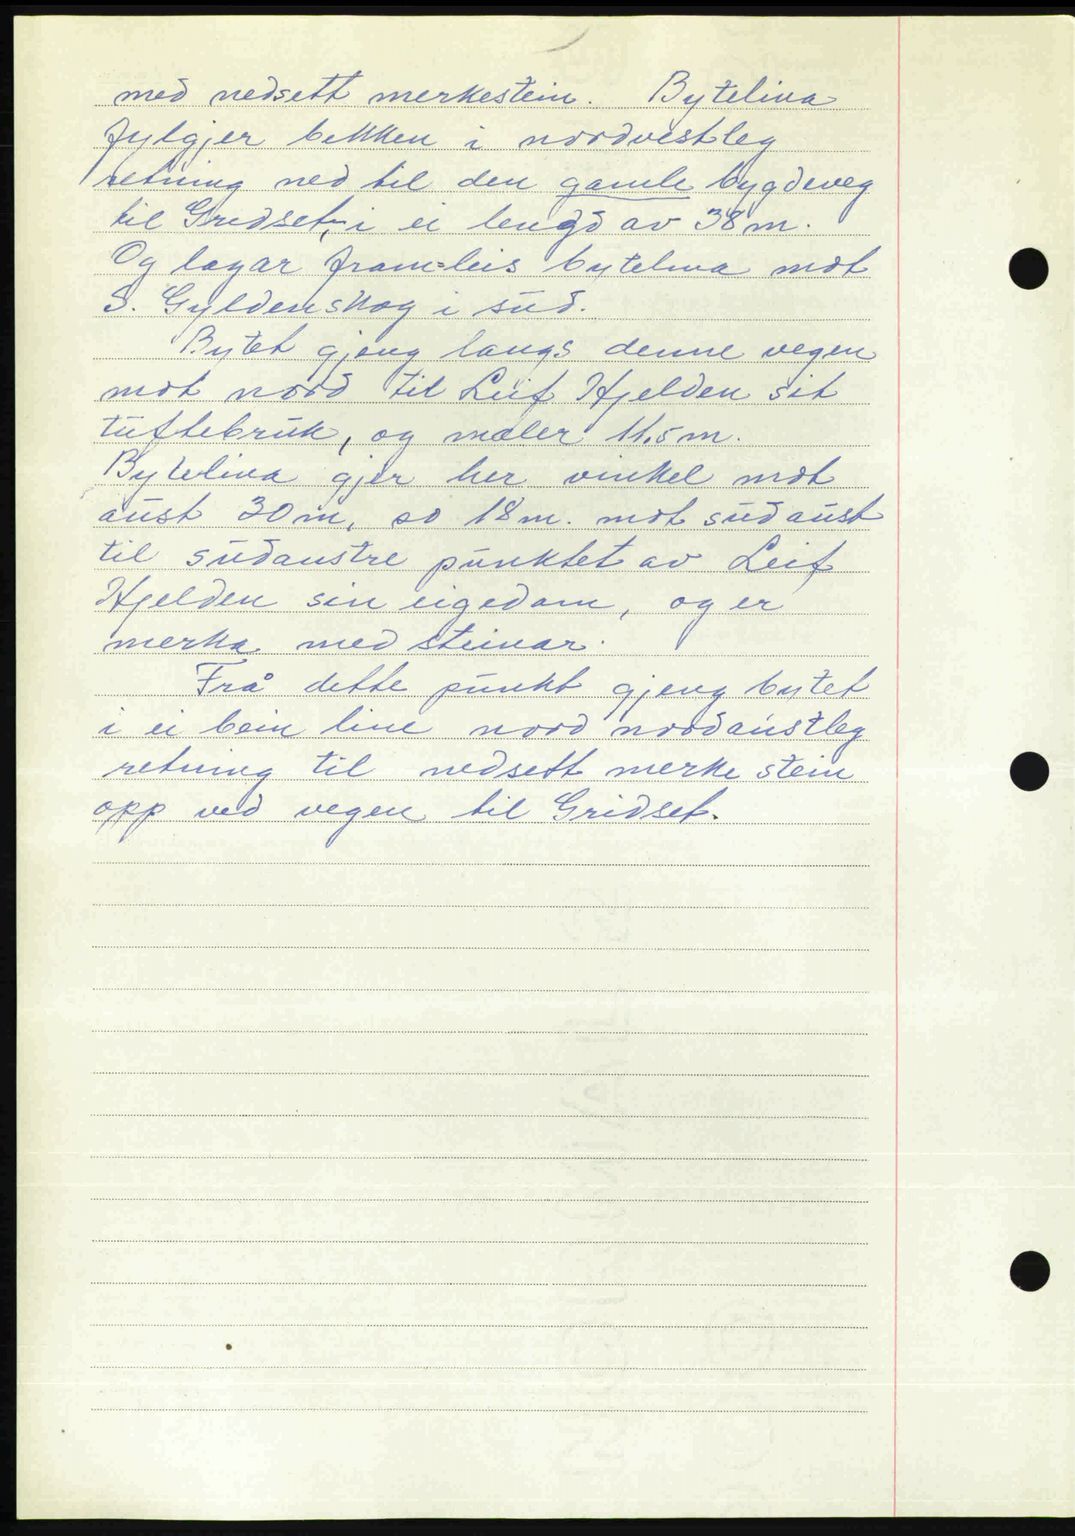 med nedsett merkestein. Bytelina
fylgjer bekken i nordvestleg
retning ned til den gamle bygdeveg
til Gridset, i ei lengd av 38 m.
Og lagar fram=leis bytelina mot
S. Gyldenskog i sud.
Bytet gjeng langs denne vegen
mot nord til Leif Hjelden sit
tuftebruk, og mæler 11,5 m.
Bytelina gjer her vinkel mot
aust 30 m, so 18 m. mot sudaust
til sudaustre punktet av Leif
Hjelden sin eigedom, og er
merka med steinar.
Frå dette punkt gjeng bytet
i ei bein line nord nordaustleg
retning til nedsett merke stein
opp ved vegen til Gridset.